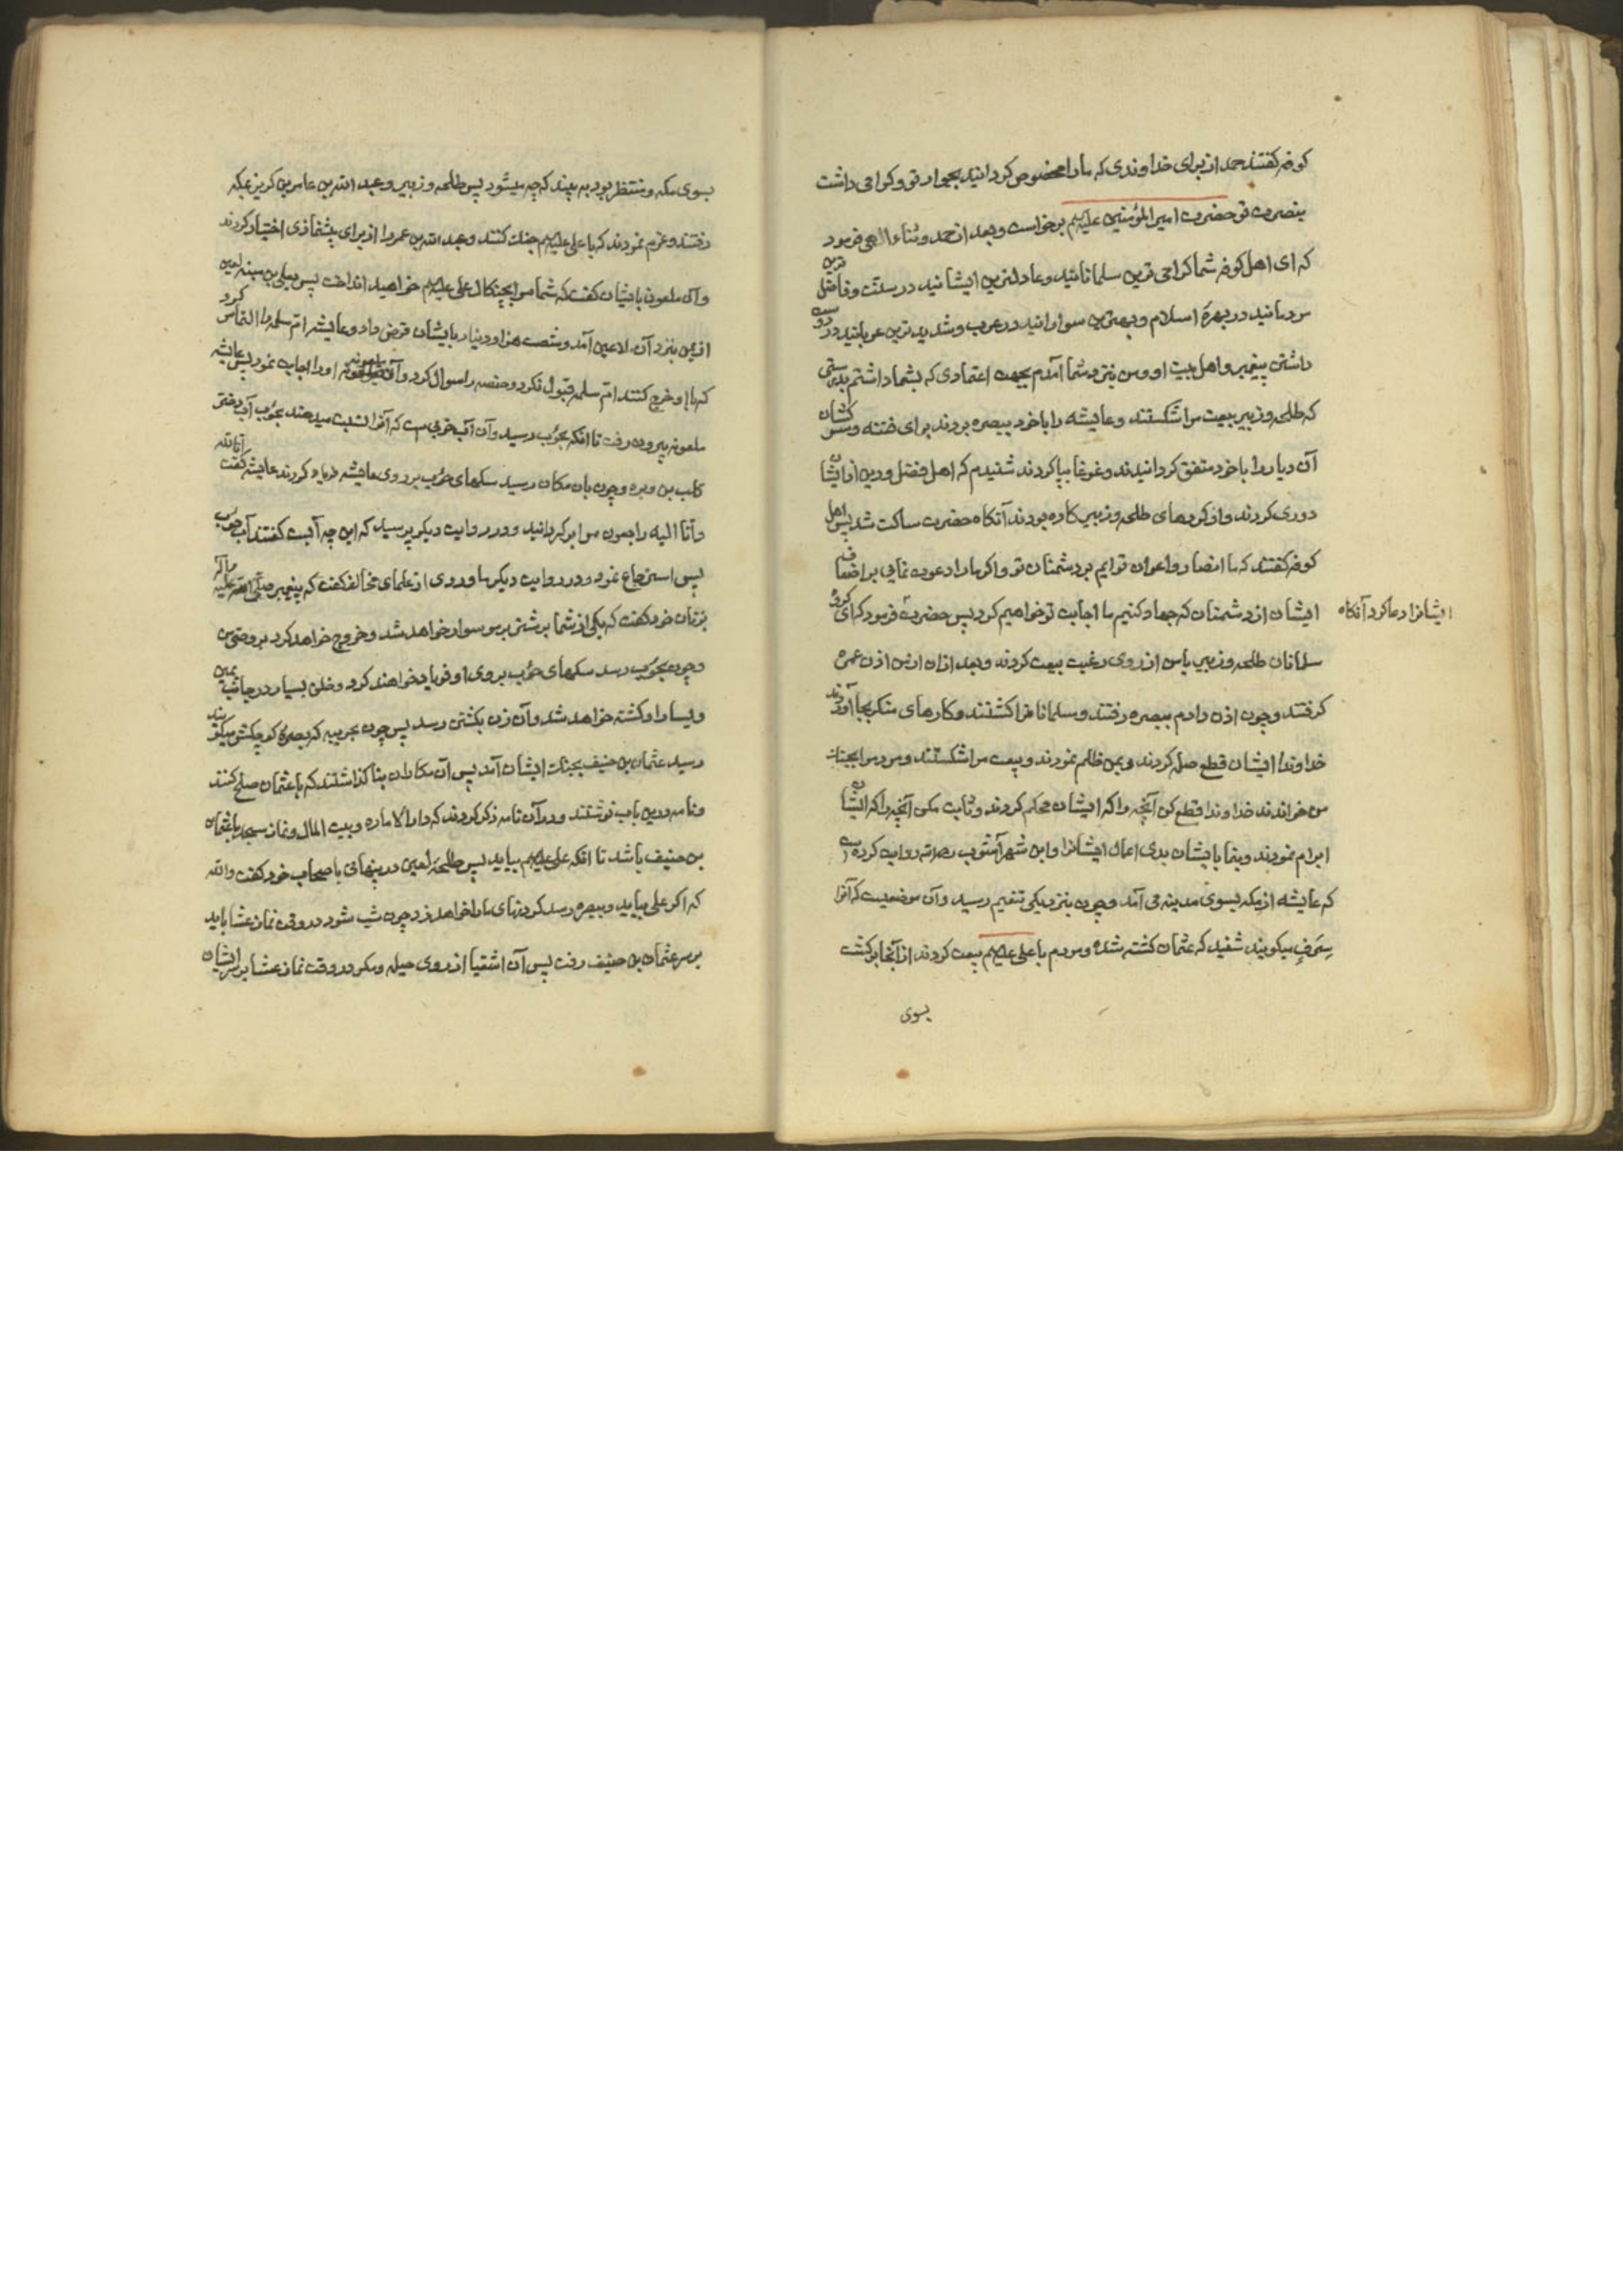 کوفه گفتند حمد از برای خداوندی که ما را مخصوص کردانید بجوار تو و کرامی داشت
بنصرت تو حضرت امیر المؤمنین علیه‌لم برخواست و بعد از حمد و ثناء الهی فرمود
که ای اهل کوفه شما کرامی ترین مسلمانانید و عادلترین ایشانید در سنّت و فاضل ترین
مردمانید در بهرهٔ اسلام و بهترین سوارانید در عرب و شدید ترین عربانید در دوست
داشتن پیغمبر و اهل بیت او و من بنزد شما آمدم بجهت اعتمادی که بشما داشتم بدرستی
که طلحه و زبیر بیعت مرا شکستند و عایشه را با خود ببصره بردند برای فتنه و
آن دیار را با خود متفق کردانیدند و غوغا بپا کردند شنیدم که اهل فضل و دین از ایشان
دوری کردند و از کردهای طلحه و زبیر کاره بودند آنکاه حضرت ساکت شد پس اهل
کوفه گفتند که ما انصار و اعوان توایم بر دشمنان تو و اکر ما را دعوت نمایی بر اضعاف
ایشان از دشمنان که جهاد کنیم ما اجابت تو خواهیم کرد پس حضرت فرمود که ای کروه
ایشانرا دعا کرد آنکاه
مسلمانان طلحه و زبیر با من از روی رغبت بیعت کردند و بعد از ان از من اذن عمره
کرفتند و چون اذن دادم ببصره رفتند و مسلمانانرا کشتند و کارهای منکر بجا آوردند
خداوندا ایشان قطع صله کردند و بمن ظلم نمودند و بیعت مرا شکستند و مردم را بجنک
من خواندند خداوندا قطع کن آنچه را که ایشان محکم کردند و ثابت مکن آنچه را که ایشان
ابرام نمودند و بنما بایشان بدی اعمال ایشانرا و ابن شهرآشوب رحمه الله روایت کرده است
که عایشه از مکه بسوی مدینه می آمد و چون بنزدیکی تنعیم رسید و آن موضعیست که آنرا
سَرِف میکویند شنید که عثمان کشته شده و مردم با علی علیه‌لم بیعت کردند از آنجا برکشت
بسوی
بسوی مکه و منتظر بود به بیند که چه میشود پس طلحه و زبیر و عبد الله بن عامر بن کریز بمکه
رفتند و عزم نمودند که با علی علیه‌لم جنک کنند و عبد الله بن عمر را از برای پیشنمازی اختیار کردند
و آن ملعون بایشان گفت که شما مرا بچنکال علی علیه‌لم خواهید انداخت پس یعلی بن منبه لعین
از یمن بنزد آن ملاعین آمد و شصت هزار دینار بایشان قرض داد و عایشه امّ سلمه را التماس کرد
که با او خروج کنند امّ سلمه قبول نکرد و حفصه را سوال کرد و آن ملعونه او را اجابت نمود پس عایشه
ملعونه بیرون رفت تا انکه بحوئب رسید و آن آب خربی است که آنرا نسبت میدهند بحوئب آب دختر
کلب بن وبره و چون بان مکان رسید سکهای حوئب بر روی عایشه فریاد کردند عایشه گفت انّا لله
و انّا الیه راجعون مرا برکردانید و در روایت دیکر پرسید که این چه آبست گفتند آب حوئب
پس استرجاع نمود و در روایت دیکر ماوردی از علمای مخالف گفت که پیغمبر صلی الله علیه و آله
بزنان خود گفت که یکی از شما بر شتر پر مو سوار خواهد شد و خروج خواهد کرد بر وصی من
و چون بحوئب رسد سکهای حوئب بر روی او فریاد خواهند کرد و خلق بسیار در جانب یمین
و یسار او کشته خواهد شد و آن زن بکشتن رسد پس چون بخریبه که بصرهٔ کوچکش میکویند
رسید عثمان بن حنیف بجنک ایشان آمد پس آن مکاران بنا کذاشتند که با عثمان صلح کنند
و نامه درین باب نوشتند و در آن نامه ذکر کردند که دار الاماره و بیت المال و نماز مسجد با عثمان
بن حنیف باشد تا انکه علی علیه‌لم بیاید پس طلحه لعین در پنهانی با صحاب خود گفت والله
که اکر علی بیاید و ببصره رسد کردنهای ما را خواهد زد چون شب شود در وقت نماز عشا باید
بر سر عثمان بن حنیف رفت پس آن اشقیا از روی حیله و مکر در وقت نماز عشا بر سر ایشان